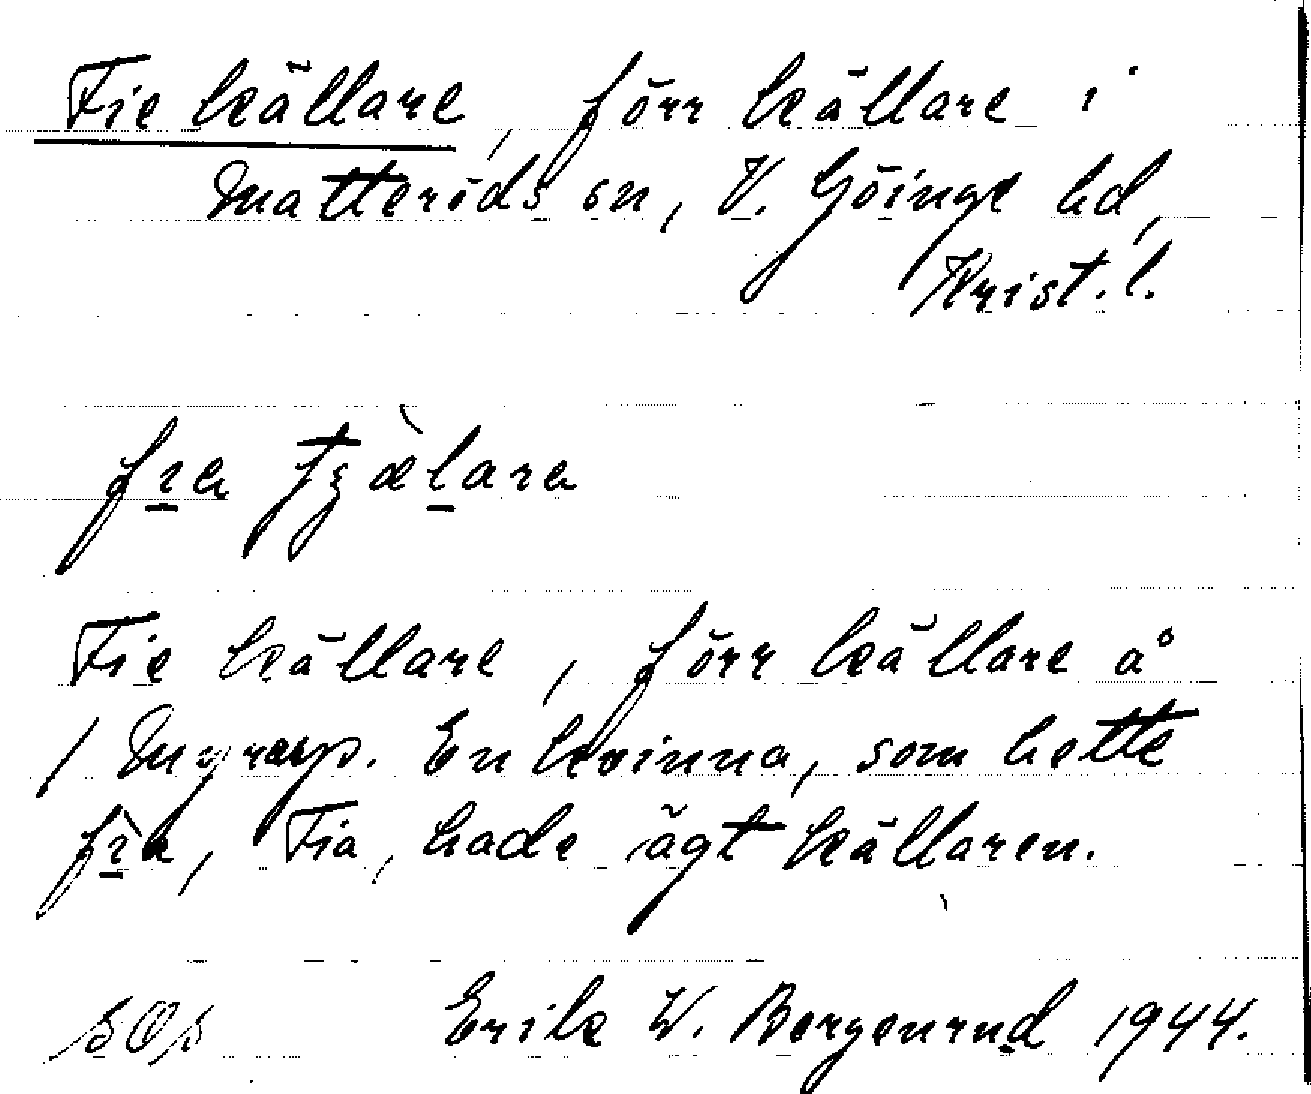 Fie källare, förr källare i
Matteröds sn, V. Göinge hd,
Krist. l.
fıa tʒælara
Fie källare, förr källare å
/ Myrarp. En kvinna, som hette
fìa, Fia, hade ägt källaren.
sOs Erik W. Bergenrud 1944.